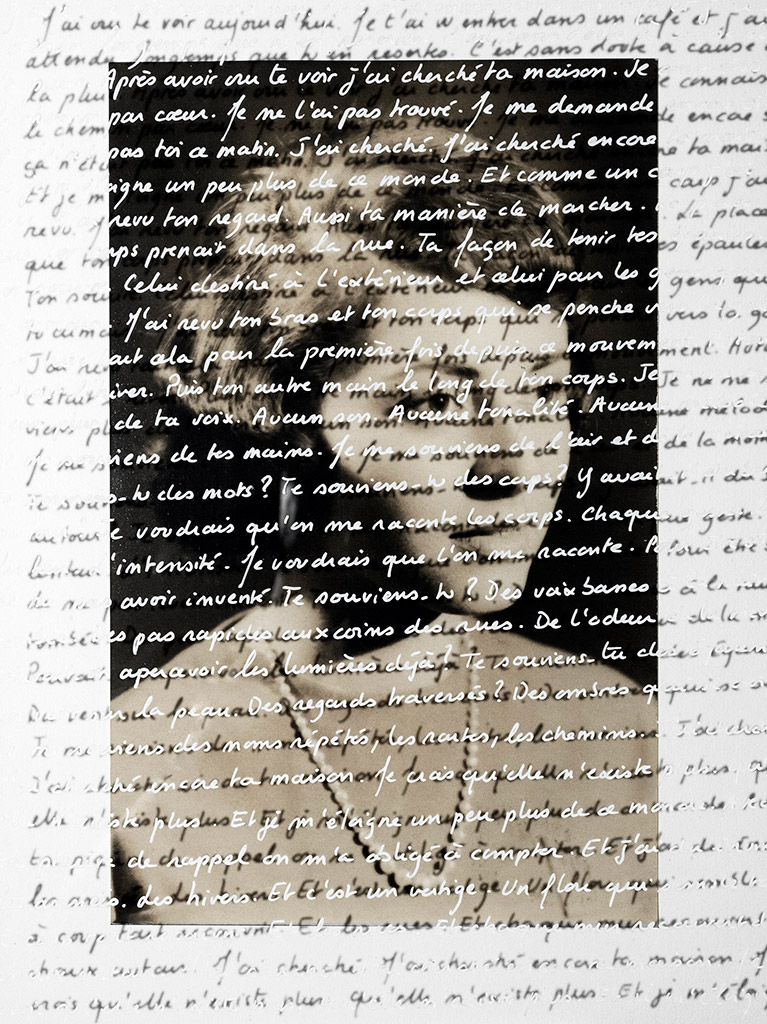 J'ai cru te voir aujourd'hui. Je t'ai vu entrer dans un café et j'ai
attendu longtemps que tu en ressortes. C'est sans doute à cause
ta plu Après avoir cru te voir j'ai cherché ta maison. Je connais
le chemin par cœur. Je ne l'ai pas trouvé. Je me demande encore s
ça n'éta pas toi ce matin. J'ai cherché. J'ai cherché encore ta mais
Et je m' igne un peu plus de ce monde. Et comme un coup j'ai
revu. revu ton regard. Aussi ta manière de marcher. La place
que ton mps prenait dans la rue. Ta façon de tenir tes épaules
Ton sourire. Celui destiné à l'extérieur et celui pour les gens que
tu aimes. J'ai revu ton bras et ton corps qui se penche vers la ga
J'ai rev ait cela pour la première fois depuis ce mouvement.
C'était hiver. Puis ton autre main le long de ton corps. Je ne me
viens pl de ta voix. Aucun son. Aucune tonalité. Aucune mélod
Je me souviens de tes mains. Je me souviens de l'air et de la moin
Te souviens-tu des mots? Te souviens-tu des corps? Y avait-il du
autour Je voudrais qu'on me raconte les corps. Chaque geste.
l'intensité. Je voudrais que l'on me raconte. Pour être
de ne p avoir inventé. Te souviens-tu? Des voix basses à la nu
tombée es pas rapides aux coins des rues. De l'odeur de la
Pouvait apercevoir les lumières déjà? Te souviens-tu
Du ven la peau. Des regards traversés? Des ombres qui se
Te souviens des noms répétés, les routes, les chemins. J'ai cher
J'ai cherché encore ta maison. Je crois qu'elle n'existe plus, qu'
elle n'existe plus. Et je m'éloigne un peu plus de ce monde.
de rappel on m'a obligé à compter. Et j'ai
des hivers. Et c'est un vertige. Un flore qui semble
à coup tout Et les rues Et
autour. J'ai cherché. J'ai cherché encore ta maison. J
crois qu'elle n'existe plus qu'elle n'existe plus. Et je m'éloig